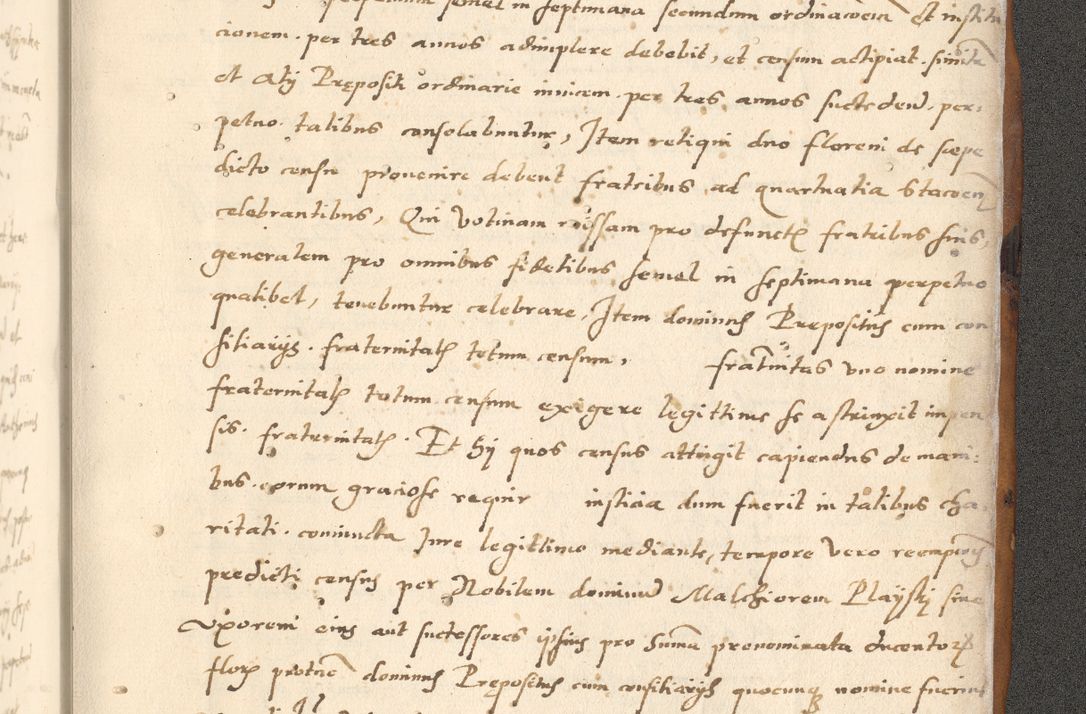 semel in septimana secundum ordinacoem et institu
cionem. per tres annos adimplere debebit, et censum accipiat. simili
et Alij Prepositi ordinarie inuicem. per tres annos succeden. per:
petuo. talibus consolabuntur, Item reliqui duo floreni de sæpe
dicto censu prouenire debent fratribus ad quartualia Stacoem
celebrantibus, Qui Votiuam missam pro defunctis fratribus suis,
generalem pro omnibus fidelibus semel in septimana perpetuo
qualibet, tenebuntur celebrare, Item dominus Prepositus cum con
siliarijs. fraternitatis totum censum, fratnitas vno nomine
fraternitatis totum censum exigere legittime se astrinxit in
sis. fraternitatis. Et hij quos census attingit capiendus de mani:
bus. eorum graciose requir insticia dum fuerit in talibus cha
ritati. coniuncta Jure legittimo mediante, tempore vero reempcois
predicti census per Nobilem dominum Malchiorem Playski siue
vxorem eius aut successores ipsius pro Suma prenominata ducentorum
flor protunc dominus Prepositus cum consiliarijs quocunq nomine fuerint